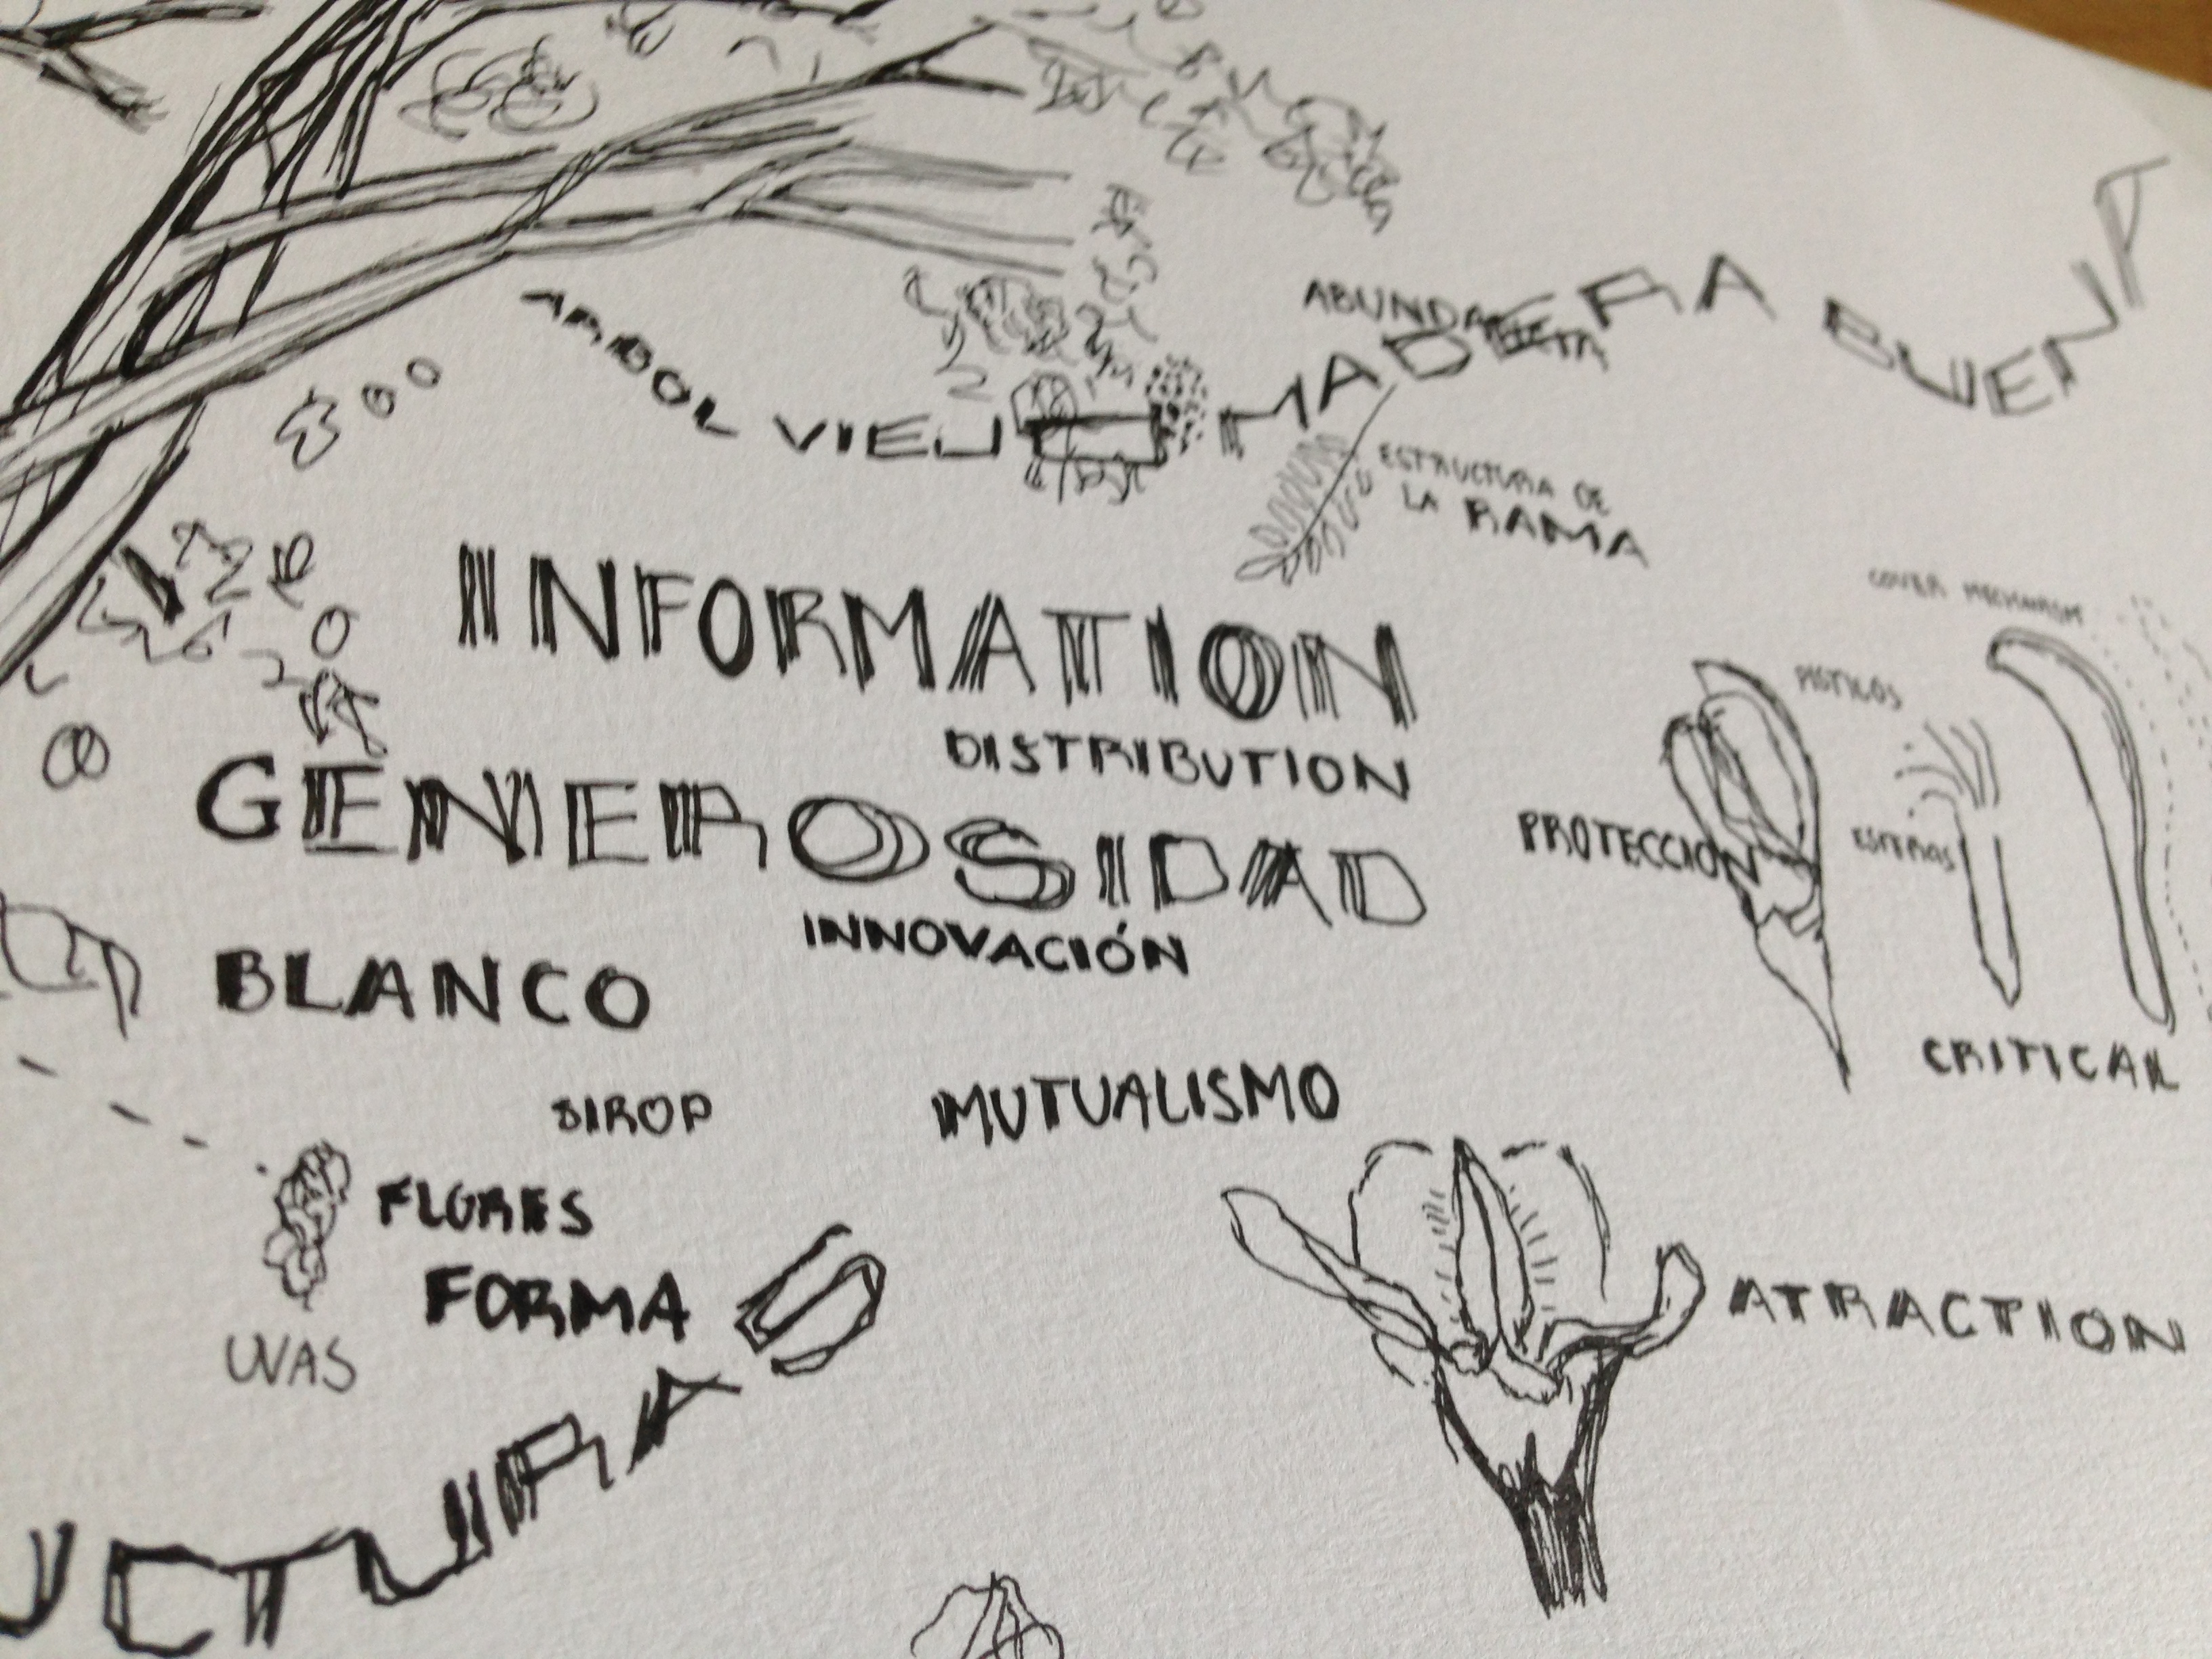 ARBOL VIEJO MADERA BUENA
ESTRUCTURA DE
LA RAMA
INFORMATION
DISTRIBUTION
GENEROSIDAD
INNOVACIÓN
BLANCO
SIROP
MUTUALISMO
FLORES
FORMA
UVAS
UCTURAS
COVER MECHANISM
PISTILOS
PROTECCION
CRITICAL
ATRACTION